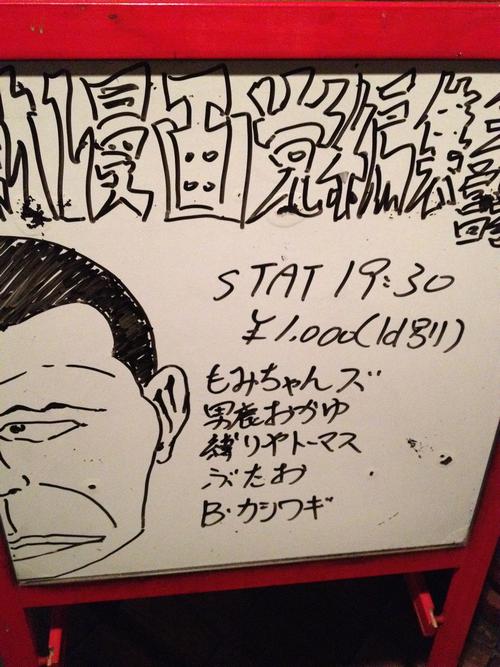 漫画党編集
STAT 19:30
¥1,000(1d別)
もみちゃんズ
男鹿おかゆ
緒りやトーマス
ぶたお
B・カシワギ